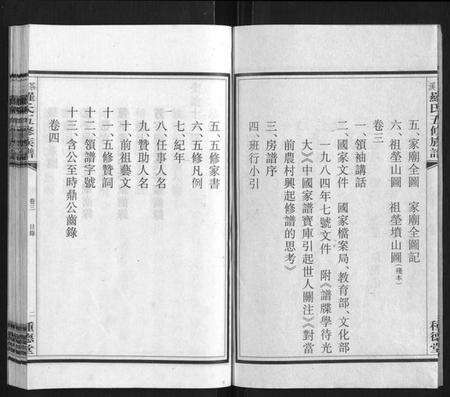 羅氏五修族譜
五、家廟全圖 家廟全圖記
六、祖塋山圖 祖塋墳山圖(殘本)
卷三
一、領袖講話
二、國家文件 國家檔案局、教育部、文化部
一九八四年七號文件 附《譜牒學待光
大》《中國家譜寶庫引起世人關注》《對當
前農村興起修譜的思考》
三、房譜序
四、班行小引
種德堂
五、五修家書
六、五修凡例
七、紀年
八、任事人名
九、贊助人名
十、前祖藝文
十一、五修贊詞
十二、領譜字號
十三、含公至時鼎公齒錄
卷四
羅氏五修族譜
卷三 目錄
二
種德堂